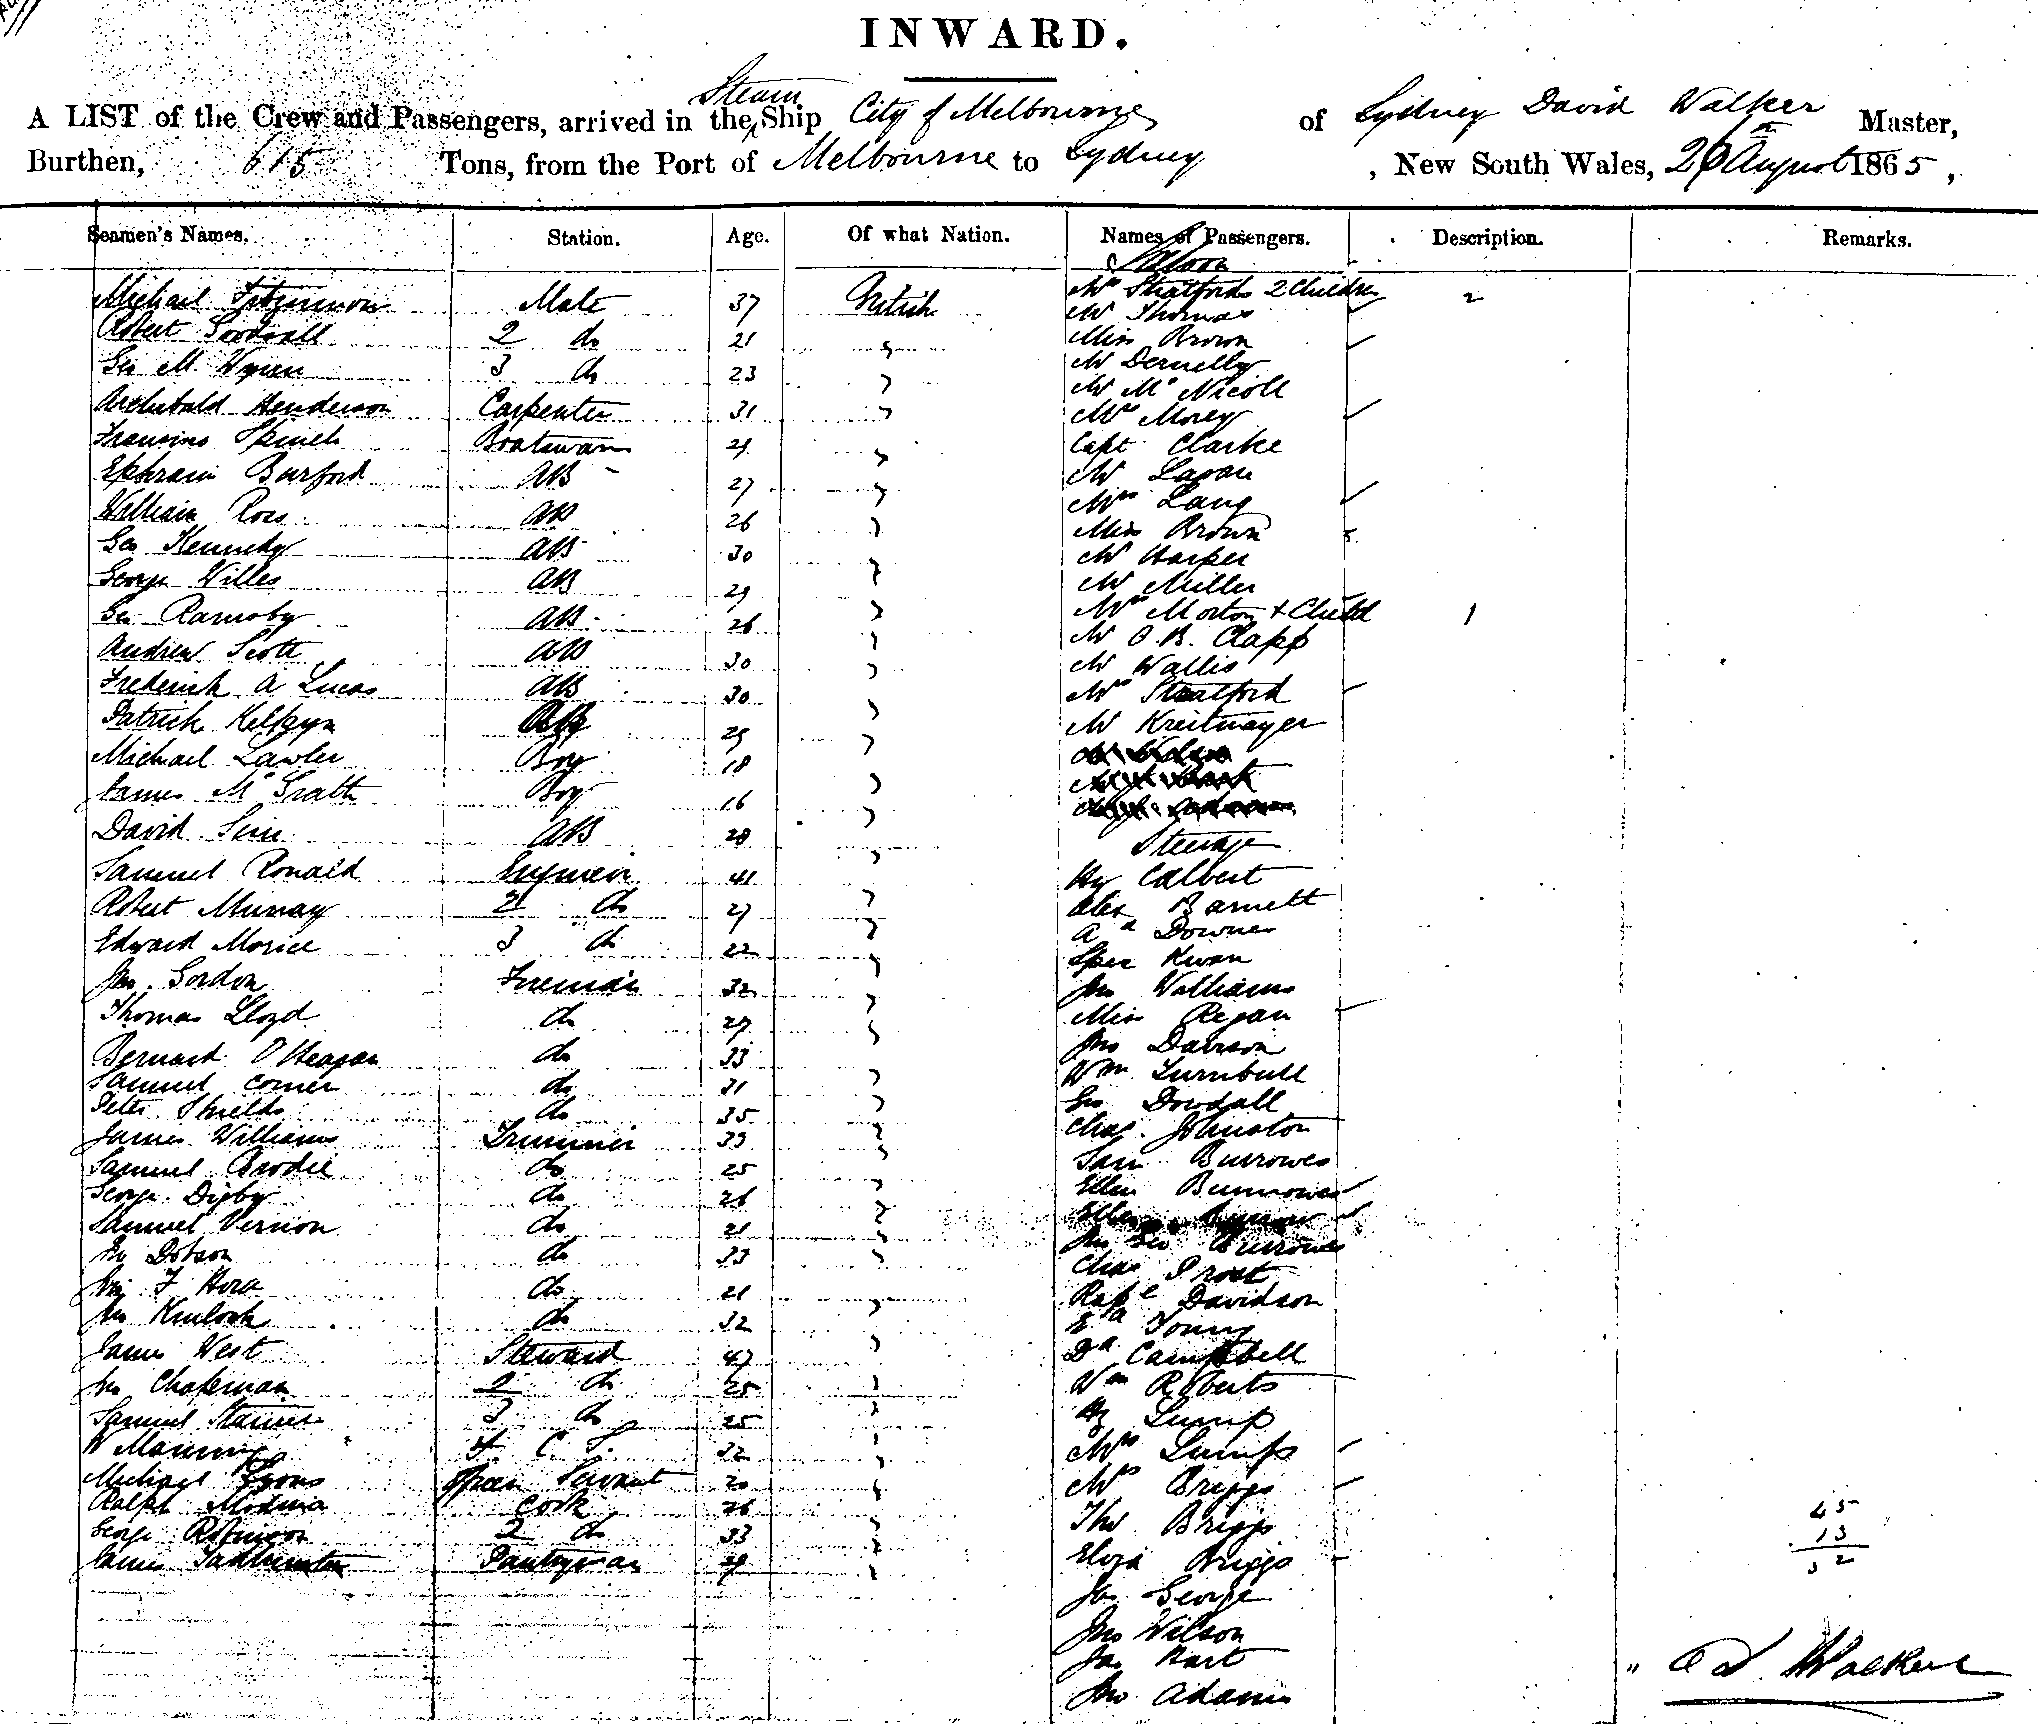 INWARD.
A LIST of the Crew and Passengers, arrived in the Steam Ship City of Melbourne of Sydney David Walker Master,
Burthen, 615 Tons, from the Port of Melbourne to Sydney, New South Wales, August 1865,
Seamen's Names. Station. Age. Of what Nation. Names of Passengers. Description. Remarks.
Saloon
Michael Fitzsimmons Mate 37 British Mrs Stratfords 2 Children 2
Mr Thomas
Robert 2 do 21 " Miss Brown
Geo M. 3 do 23 " Mr Dernelly
Mr McNicoll
Archibald Henderson Carpenter 31 " Mrs Morey
Boatswain 29 " Capt Clarke
Ephraim Burford AB 27 " Mr
Mrs Lang
William Ross AB 26 " Miss Brown
Geo Kennedy AB 30 " Mr Harper
George Willes AB 29 " Mr Miller
Geo Ramsby AB 26 " Mrs Morton & Child 1
Mr O.B. Clapp
Andrew Scott AB 30 " Mr Wallis
Frederick A Lucas AB 30 " Mrs Stratford
Patrick AB 29 " Mr Kreitmayer
Michael Lawler Boy 18 "
James McGrath Boy 16 "
David Sim AB 28 " Steerage
Samuel Ronald Engineer 41 " Hy Calbert
Robert Murray 2 do 27 " Alex Barnett
Edward Morice 3 do 22 " Downes
Kwan
Jno. Gordon Fireman 32 " Jno Williams
Thomas Lloyd do 27 " Miss Regan
Bernard O'Heagan do 33 Jno Davison
Samuel Corner do 31 " Wm. Turnbull
Peter Shields do 35 " Geo Dowdall
James Williams Trimmer 33 " Chas. Johnston
Samuel Brodie do 25 " Sam Burrowes
George Digby do 26 " Ellen Burrowes
Samuel Vernon do 21 " Ellen
Hy Dobson do 33 " Jno Geo Burrowes
Chas Prost
F Hora do 21 Davidson
Jno Kinloch do 32 " Young
James West Steward 47 " Campbell
Jno Chapman 2 do 25 " Wm Roberts
Samuel 3 do 25 " Hy Lump
W Manning 32 " Mrs Lump
Michael Lyons Servant 20 " Mrs Briggs
Ralph Cook 26 Thos Briggs
George Robinson 2 do 33 "
James Pantryman 29 " Eliza Briggs
Jas George
Jno Wilson
Jas Hart
Jno Adams
45
13
32
D. Walker